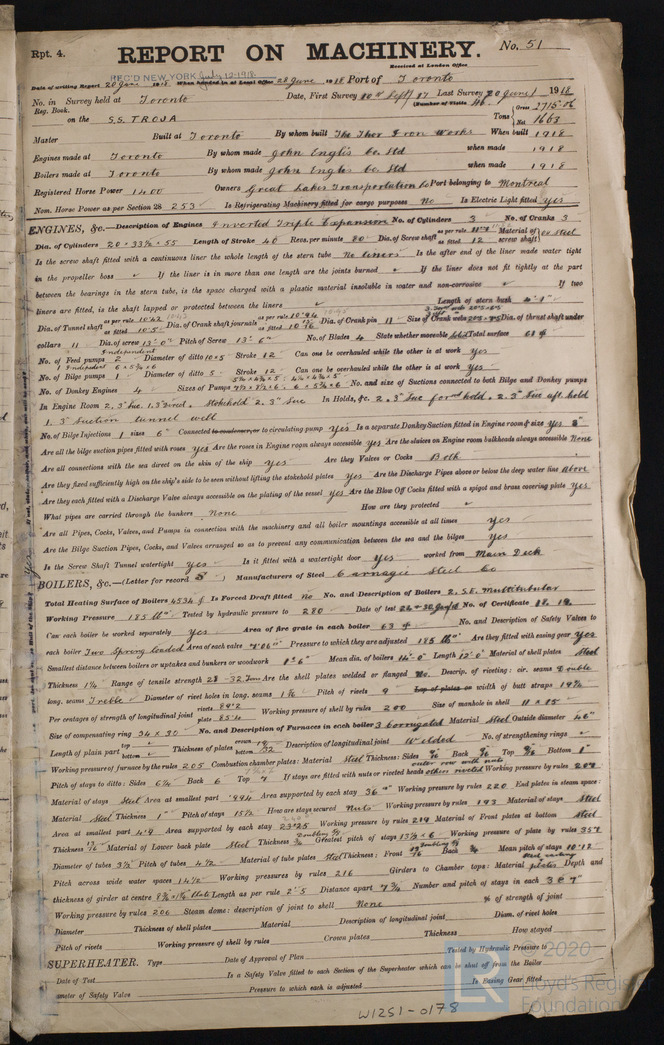 Rpt. 4.
REPORT ON MACHINERY.
No. 51
Received at London Office
REC'D NEW YORK July 12-1918
Date of writing Report 20 June 1918 When handed in at Local Office 28 June 1918 Port of Toronto
No. in Survey held at Toronto Date, First Survey 10th Sept/17 Last Survey 20 June 1918
Reg. Book. (Number of Visits 46)
on the S.S. TROJA Tons Gross 2715.06 Net 1663
Master Built at Toronto By whom built The Thor Iron Works When built 1918
Engines made at Toronto By whom made John Englis Co. Ltd when made 1918
Boilers made at Toronto By whom made John Englis Co. Ltd when made 1918
Registered Horse Power 1400 Owners Great Lakes Transportation Co Port belonging to Montreal
Nom. Horse Power as per Section 28 253 Is Refrigerating Machinery fitted for cargo purposes No Is Electric Light fitted Yes
ENGINES, &c.—Description of Engines Inverted Triple Expansion No. of Cylinders 3 No. of Cranks 3
Dia. of Cylinders 20 × 33½ × 55 Length of Stroke 40 Revs. per minute 80 Dia. of Screw shaft as per rule as fitted 12 Material of screw shaft Steel
Is the screw shaft fitted with a continuous liner the whole length of the stern tube No liners Is the after end of the liner made water tight
in the propeller boss If the liner is in more than one length are the joints burned If the liner does not fit tightly at the part
between the bearings in the stern tube, is the space charged with a plastic material insoluble in water and non-corrosive If two
liners are fitted, is the shaft lapped or protected between the liners Length of stern bush
Dia. of Tunnel shaft as per rule 10.62 as fitted 10.5 Dia. of Crank shaft journals as per rule as fitted Dia. of Crank pin 11 Size of Crank webs Dia. of thrust shaft under
collars 11 Dia. of screw 13'.0" Pitch of Screw 13'.6" No. of Blades 4 State whether moveable Total surface
No. of Feed pumps 2 Independent Diameter of ditto 10×5 Stroke 12 Can one be overhauled while the other is at work Yes
No. of Bilge pumps 1 Diameter of ditto 5 Stroke 12 Can one be overhauled while the other is at work Yes
No. of Donkey Engines 4 Sizes of Pumps No. and size of Suctions connected to both Bilge and Donkey pumps
In Engine Room 2. 3" Suc. 1. 3" Direct. Stokehold 2. 3" Suc In Holds, &c. 2. 3" Suc for'd hold. 2. 3" Suc aft. hold
1. 3" Suction tunnel well
No. of Bilge Injections 1 sizes 6" Connected to condenser, or to circulating pump Yes Is a separate Donkey Suction fitted in Engine room & size Yes 3"
Are all the bilge suction pipes fitted with roses Yes Are the roses in Engine room always accessible Yes Are the sluices on Engine room bulkheads always accessible None
Are all connections with the sea direct on the skin of the ship Yes Are they Valves or Cocks Both
Are they fixed sufficiently high on the ship's side to be seen without lifting the stokehold plates Yes Are the Discharge Pipes above or below the deep water line Above
Are they each fitted with a Discharge Valve always accessible on the plating of the vessel Yes Are the Blow Off Cocks fitted with a spigot and brass covering plate Yes
What pipes are carried through the bunkers None How are they protected
Are all Pipes, Cocks, Valves, and Pumps in connection with the machinery and all boiler mountings accessible at all times Yes
Are the Bilge Suction Pipes, Cocks, and Valves arranged so as to prevent any communication between the sea and the bilges Yes
Is the Screw Shaft Tunnel watertight Yes Is it fitted with a watertight door Yes worked from Main Deck
BOILERS, &c.—(Letter for record S) Manufacturers of Steel Carnegie Steel Co
Total Heating Surface of Boilers 4534 Is Forced Draft fitted No No. and Description of Boilers 2. S.E. Multitubular
Working Pressure 185 lbs Tested by hydraulic pressure to 280 Date of test No. of Certificate 18. 19.
Can each boiler be worked separately Yes Area of fire grate in each boiler 63 No. and Description of Safety Valves to
each boiler Two Spring loaded Area of each valve Pressure to which they are adjusted 185 lbs Are they fitted with easing gear Yes
Smallest distance between boilers or uptakes and bunkers or woodwork 1'.6" Mean dia. of boilers 14'.0" Length 12'.0" Material of shell plates Steel
Thickness 1¼ Range of tensile strength 28-32 Tons Are the shell plates welded or flanged No. Descrip. of riveting: cir. seams Double
long. seams Treble Diameter of rivet holes in long. seams Pitch of rivets 9 Lap of plates or width of butt straps 19¾
Per centages of strength of longitudinal joint rivets 89.2 plate 85.4 Working pressure of shell by rules 200 Size of manhole in shell 11 × 15
Size of compensating ring 34 × 30 No. and Description of Furnaces in each boiler 3 corrugated Material Steel Outside diameter 46"
Length of plain part top bottom Thickness of plates crown bottom Description of longitudinal joint Welded No. of strengthening rings
Working pressure of furnace by the rules 205 Combustion chamber plates: Material Steel Thickness: Sides Back Top Bottom 1"
Pitch of stays to ditto: Sides 6¾ Back 6 Top 7 If stays are fitted with nuts or riveted heads outer row with nuts others riveted Working pressure by rules
Material of stays Steel Area at smallest part .994 Area supported by each stay 36 Working pressure by rules 220 End plates in steam space:
Material Steel Thickness 1" Pitch of stays 15½ How are stays secured Nuts Working pressure by rules 193 Material of stays Steel
Area at smallest part 4.9 Area supported by each stay Working pressure by rules 219 Material of Front plates at bottom Steel
Thickness Material of Lower back plate Steel Thickness Greatest pitch of stays Working pressure of plate by rules 357
Diameter of tubes 3½ Pitch of tubes 4½ Material of tube plates Steel Thickness: Front Back Mean pitch of stays 10.12
Pitch across wide water spaces 14½ Working pressures by rules 216 Girders to Chamber tops: Material plates Depth and
thickness of girder at centre Length as per rule 2'.5 Distance apart 7¾ Number and pitch of stays in each 3 @ 7"
Working pressure by rules 200 Steam dome: description of joint to shell None % of strength of joint
Diameter Thickness of shell plates Material Description of longitudinal joint Diam. of rivet holes
Pitch of rivets Working pressure of shell by rules Crown plates Thickness How stayed
SUPERHEATER. Type Date of Approval of Plan Tested by Hydraulic Pressure to
Date of Test Is a Safety Valve fitted to each Section of the Superheater which can be shut off from the Boiler
Diameter of Safety Valve Pressure to which each is adjusted Is Easing Gear fitted
W1251-0178
2020
Lloyd's Register
Foundation